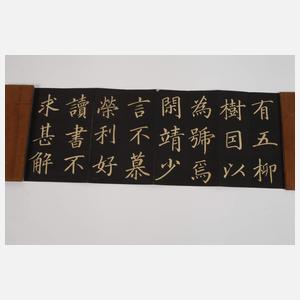 有五柳
樹因以
為號焉
閑靖少
言不慕
榮利好
讀書不
求甚解